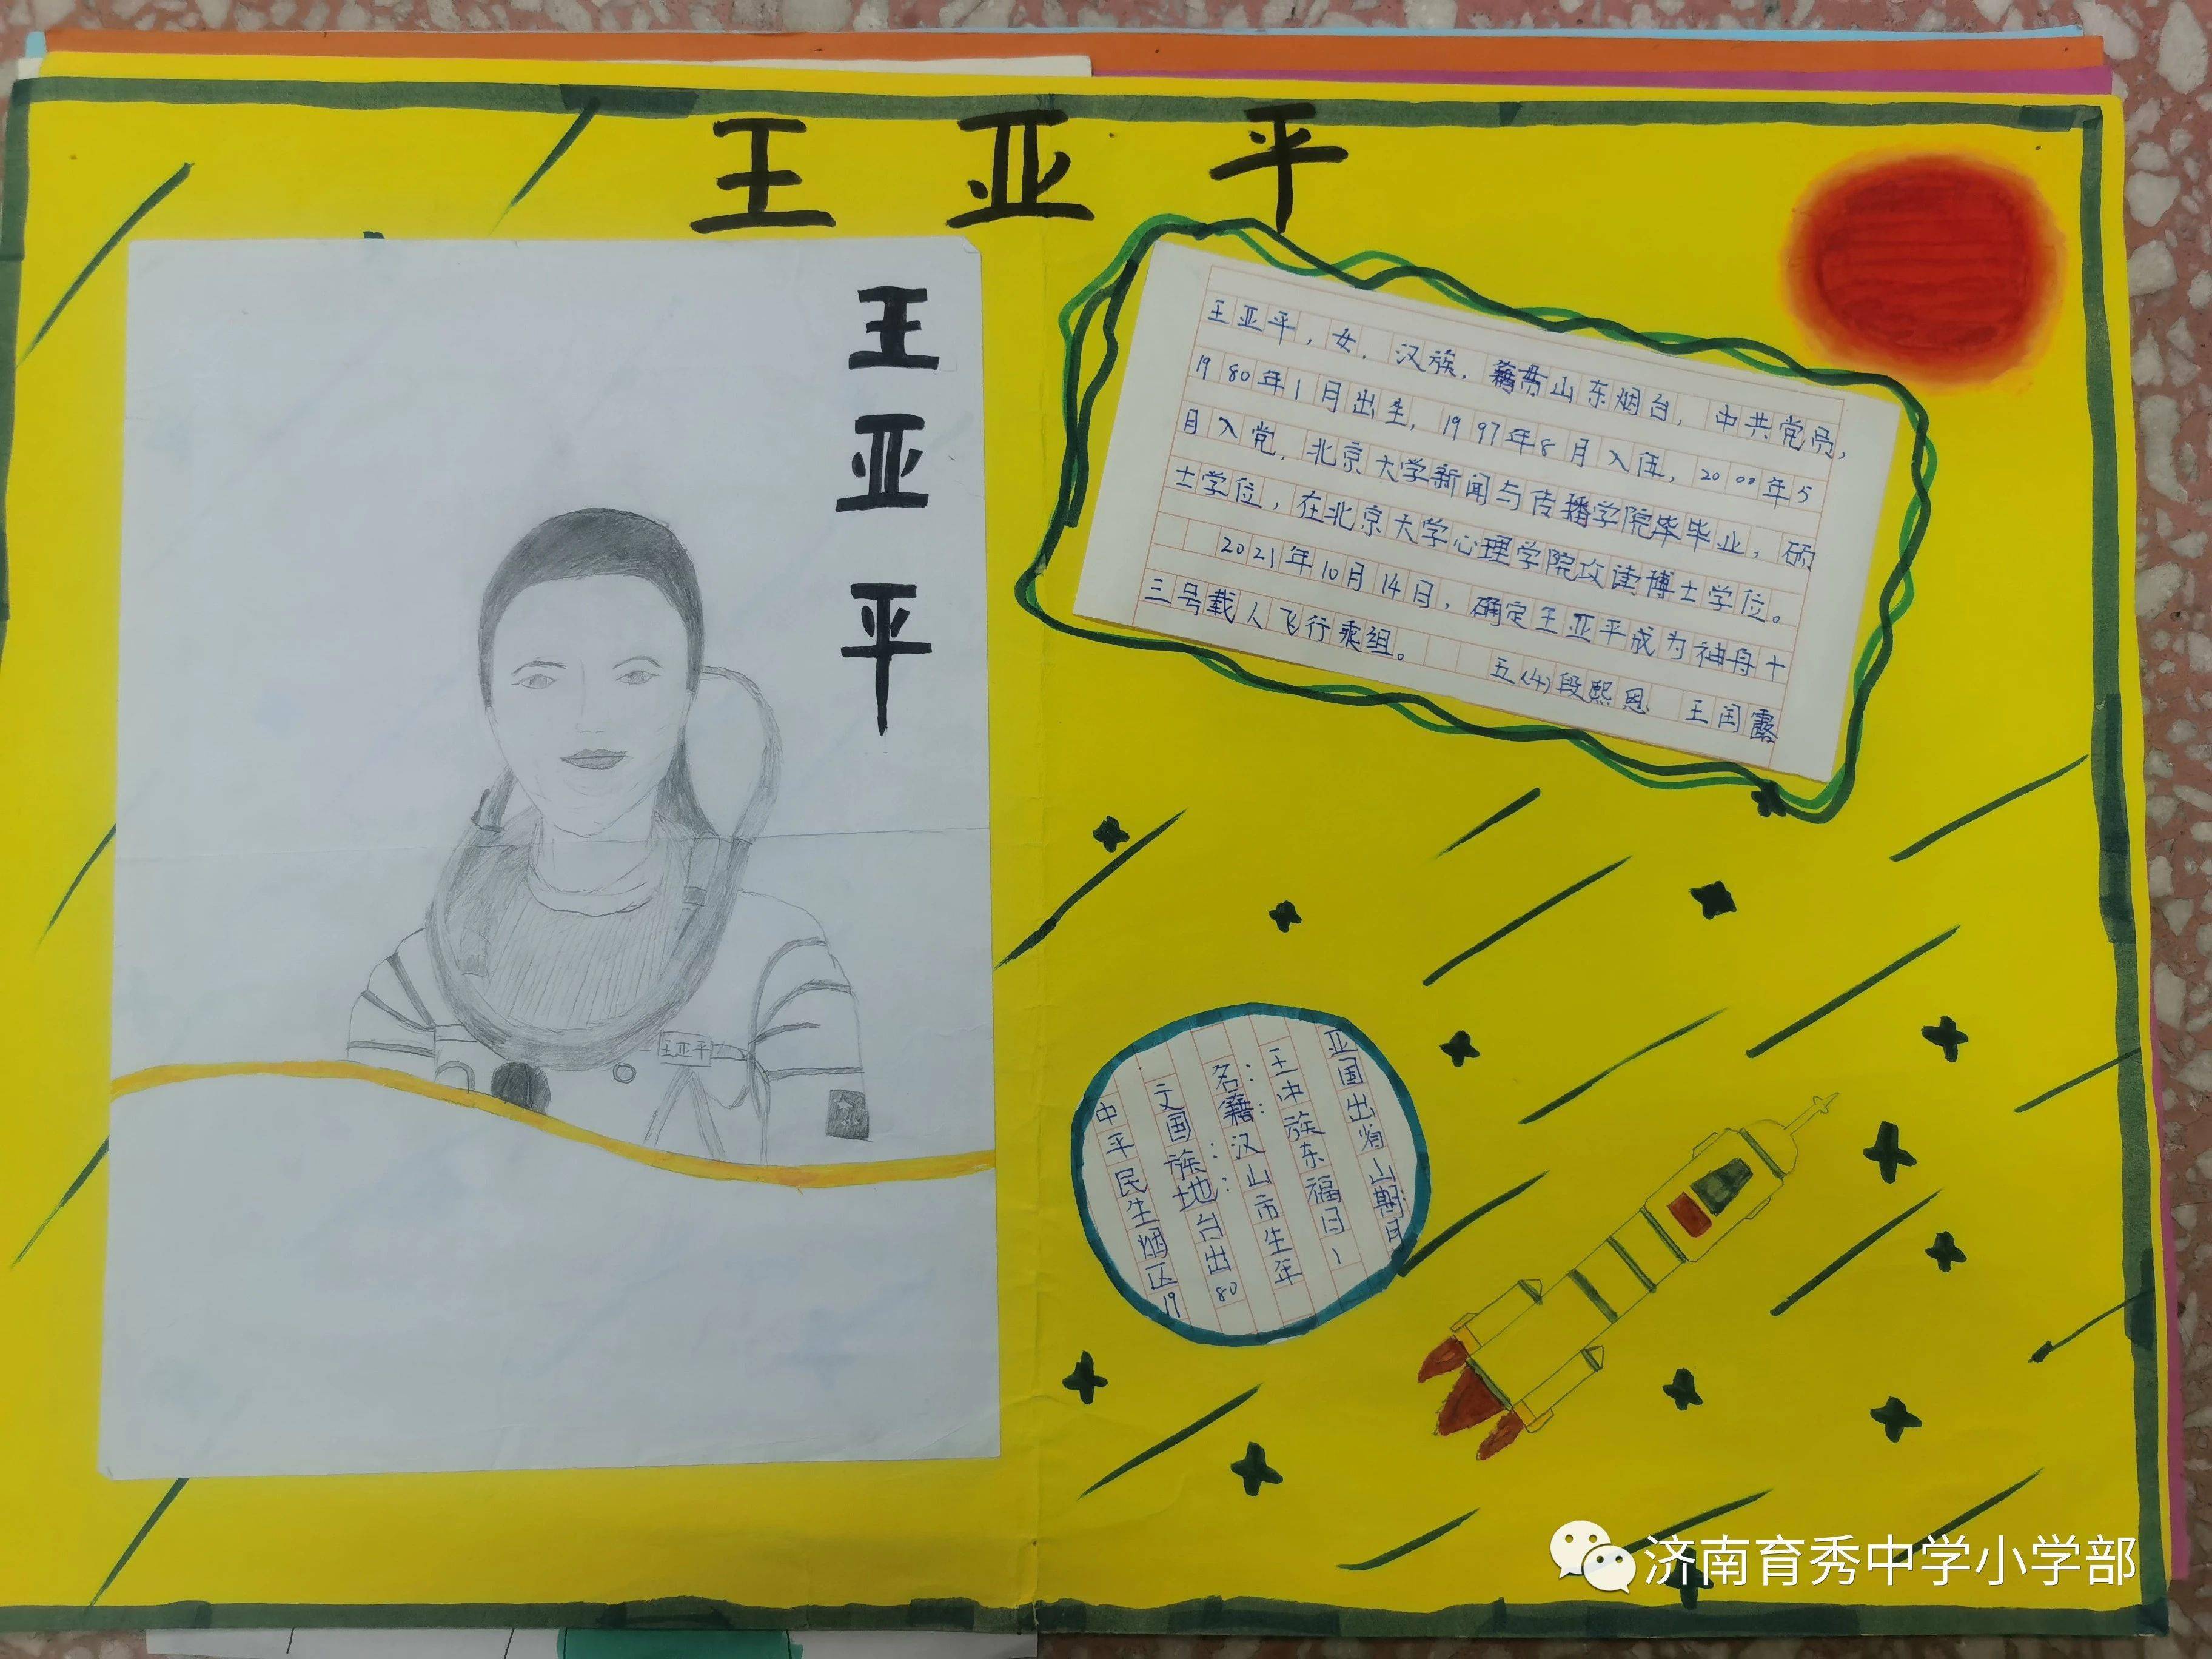 王亚平
王亚平
王亚平，女，汉族，籍贯山东烟台，中共党员，
1980年1月出生，1997年8月入伍，2000年5
月入党，北京大学新闻与传播学院毕毕业，硕
士学位，在北京大学心理学院攻读博士学位。
2021年10月14日，确定王亚平成为神舟十
三号载人飞行乘组。 五(4)段熙恩 王闰露
王亚平
中文名：王亚
平国籍：中国
民族：汉族出
生地：山东省
烟台市福山
区出生日期
1980年1月
济南育秀中学小学部